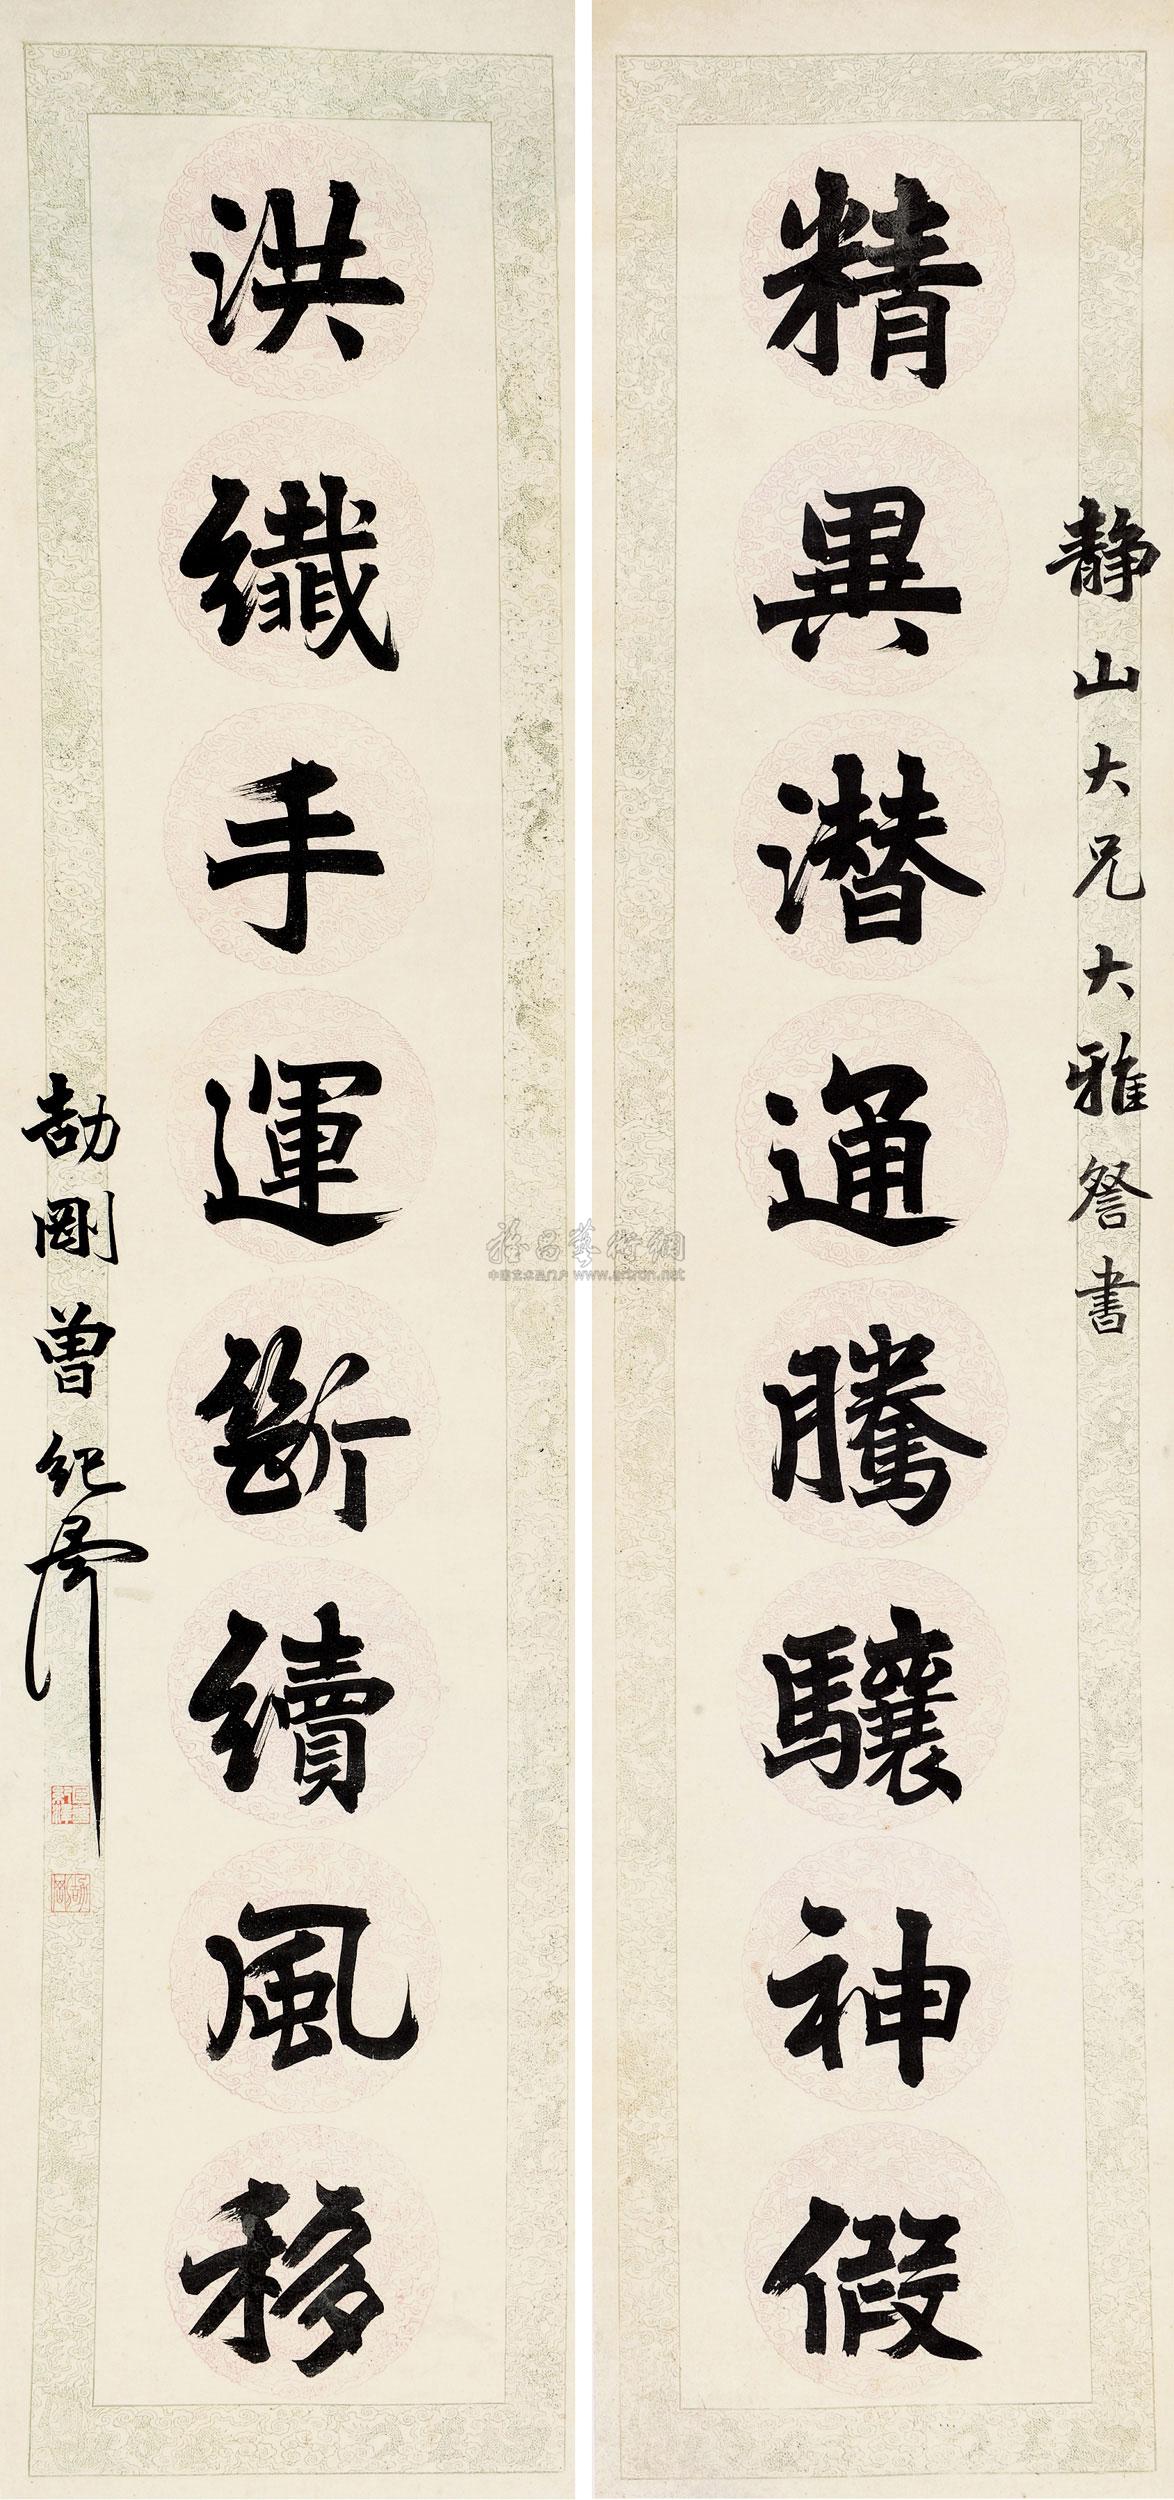 靜山大兄大雅詧書
精異潛通騰驤神假
洪纖手運斷續風移
劼剛曾紀澤
雅昌藝術網
中国艺术品门户 www.artron.net